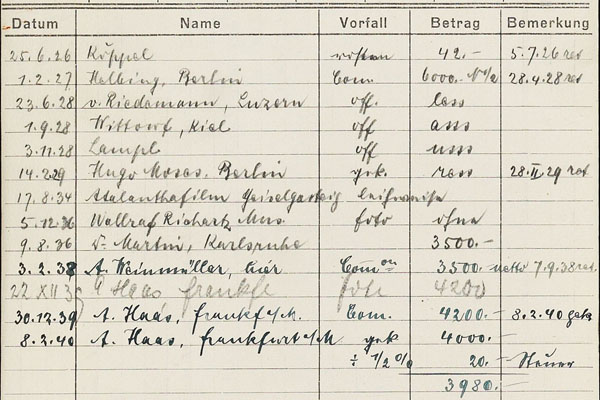 Datum Name Vorfall Betrag Bemerkung
25.6.26 Köppel 42.- 5.7.26 ret
1.2.27 Helbing, Berlin Com. 6000.- 28.4.28 ret
23.6.28 v. Riedemann, Luzern off. less
1.9.28 Wittorf, Kiel off ass
3.11.28 Lampl off uss
14.2.29 Hugo Moses, Berlin gek. ress 28.II.29 ret
17.8.34 Atalanthafilm Geiselgasteig leihweise
5.12.36 Wallraf Richartz Mus. foto ohne
9.8.36 Dr. Martin, Karlsruhe 3500.-
3.2.38 A. Weinmüller, hier Com 3500.- netto 7.9.38 ret.
22 XII 39 A Haas frankf. 4200
30.12.39 A. Haas, frankf a/M. Com. 4200.- 8.2.40 gek
8.2.40 A. Haas, frankfurt a/M gek 4000.-
÷ 1/2 % 20.- Steuer
3980.-